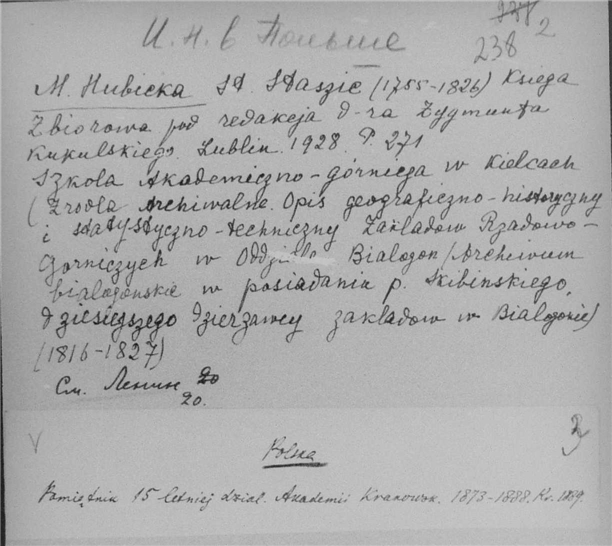 И. Н. в Польше
238 2
M. Hubicka St. Staszic (1755-1826) Księga
Zbiorowa pod redakcja d-ra Zygmunta
Kukulskiego. Lublin. 1928. P. 271
Szkola Akademiczno-górnicza w Kielcach
(Zrodla Archiwalne. Opis geograficzno-historyczny
i statystyczno-techniczny Zakladow Rzadowo-
Gorniczych w Oddziale Bialogon/Archiwum
bialogonskie w posiadaniu p. Skibinskiego,
dzisiejszego dzierzawcy zakladow w Bialogonie)
(1816-1827)
См. Ленин
20.
Polska
Pamiętnik 15 letniej dzial. Akademii Krakowsk. 1873-1888. Kr. 1889.